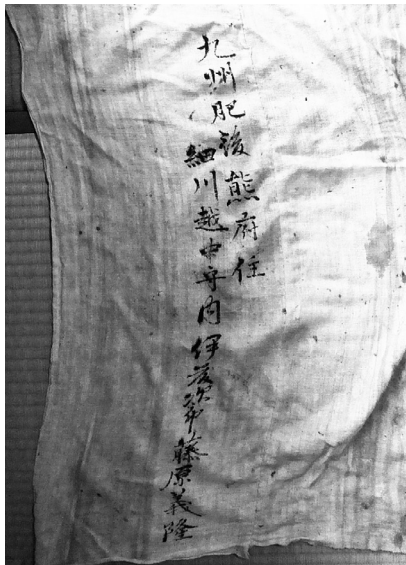 九州肥後熊府住
細川越中守内伊 次 藤原義隆